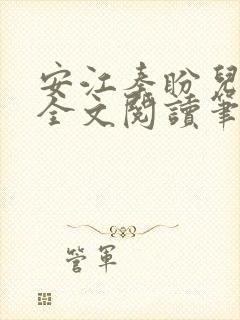 安江秦盼兒
全文閱讀筆
管軍